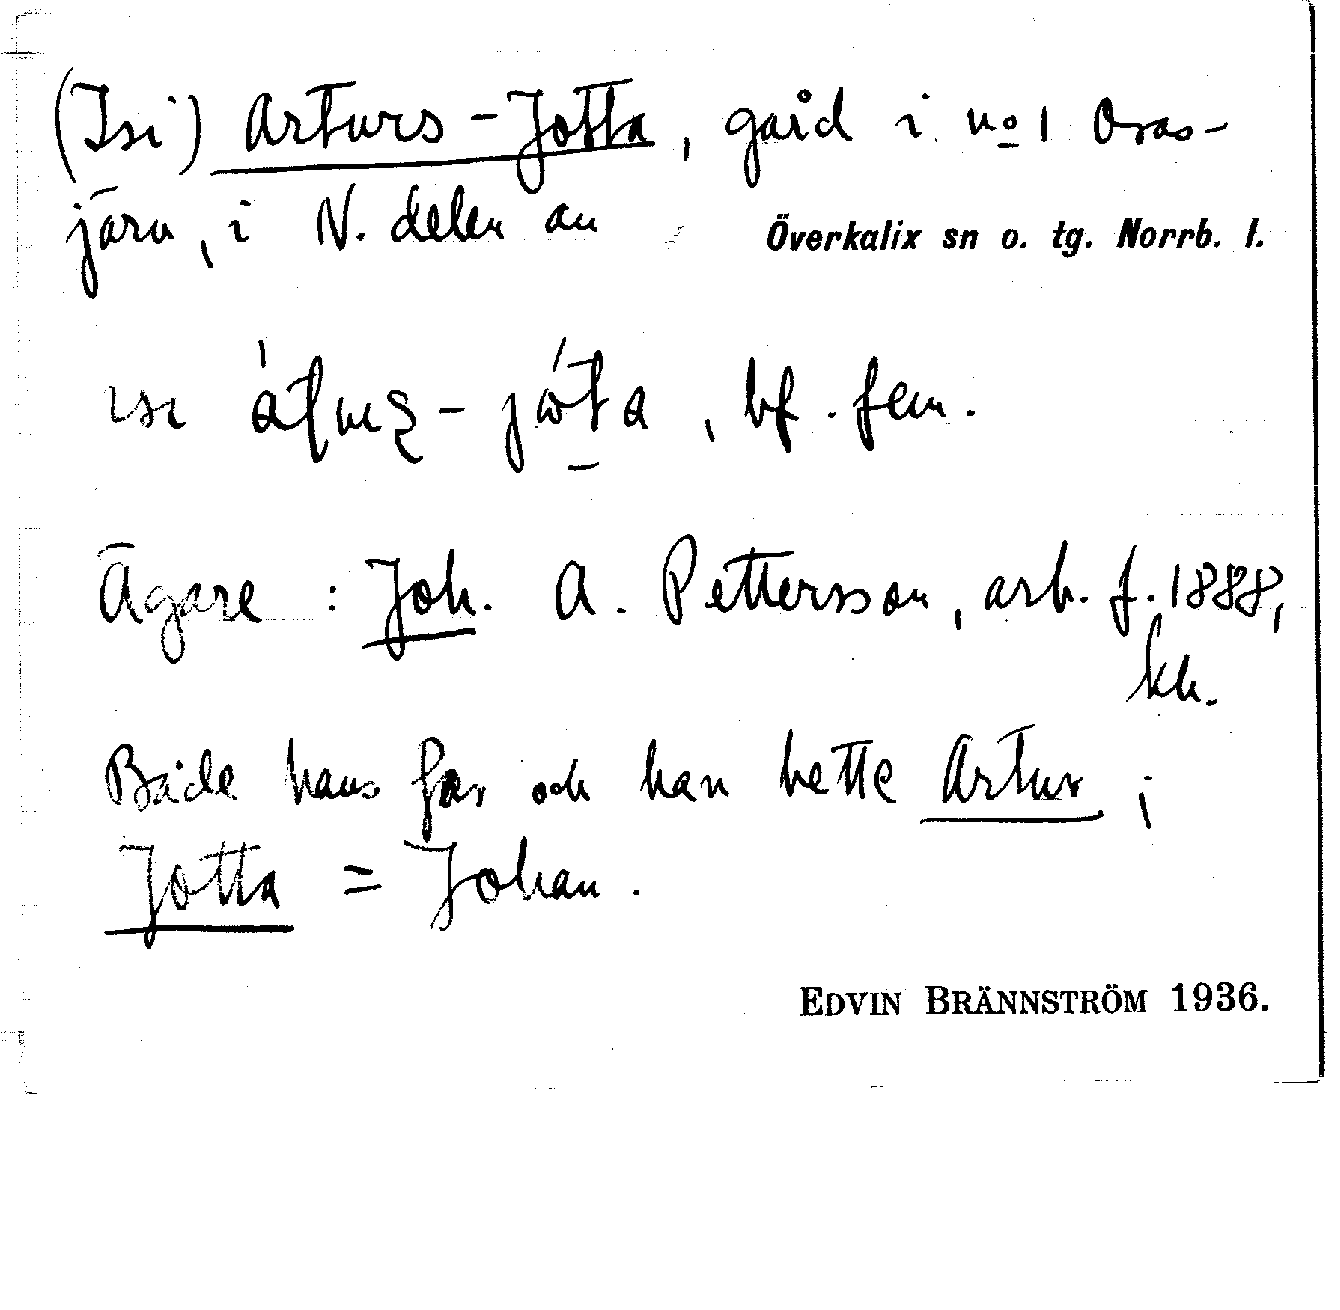 (Isi) Arturs-Jotta, gård i no 1 Oras-
järv, i N. delen av Överkalix sn o. tg. Norrb. l.
isi -jòta, bf. fem.
Ägare : Joh. A. Pettersson, arb. f. 1888,
kh.
Både hans far och han hette Artur ;
Jotta = Johan.
EDVIN BRÄNNSTRÖM 1936.